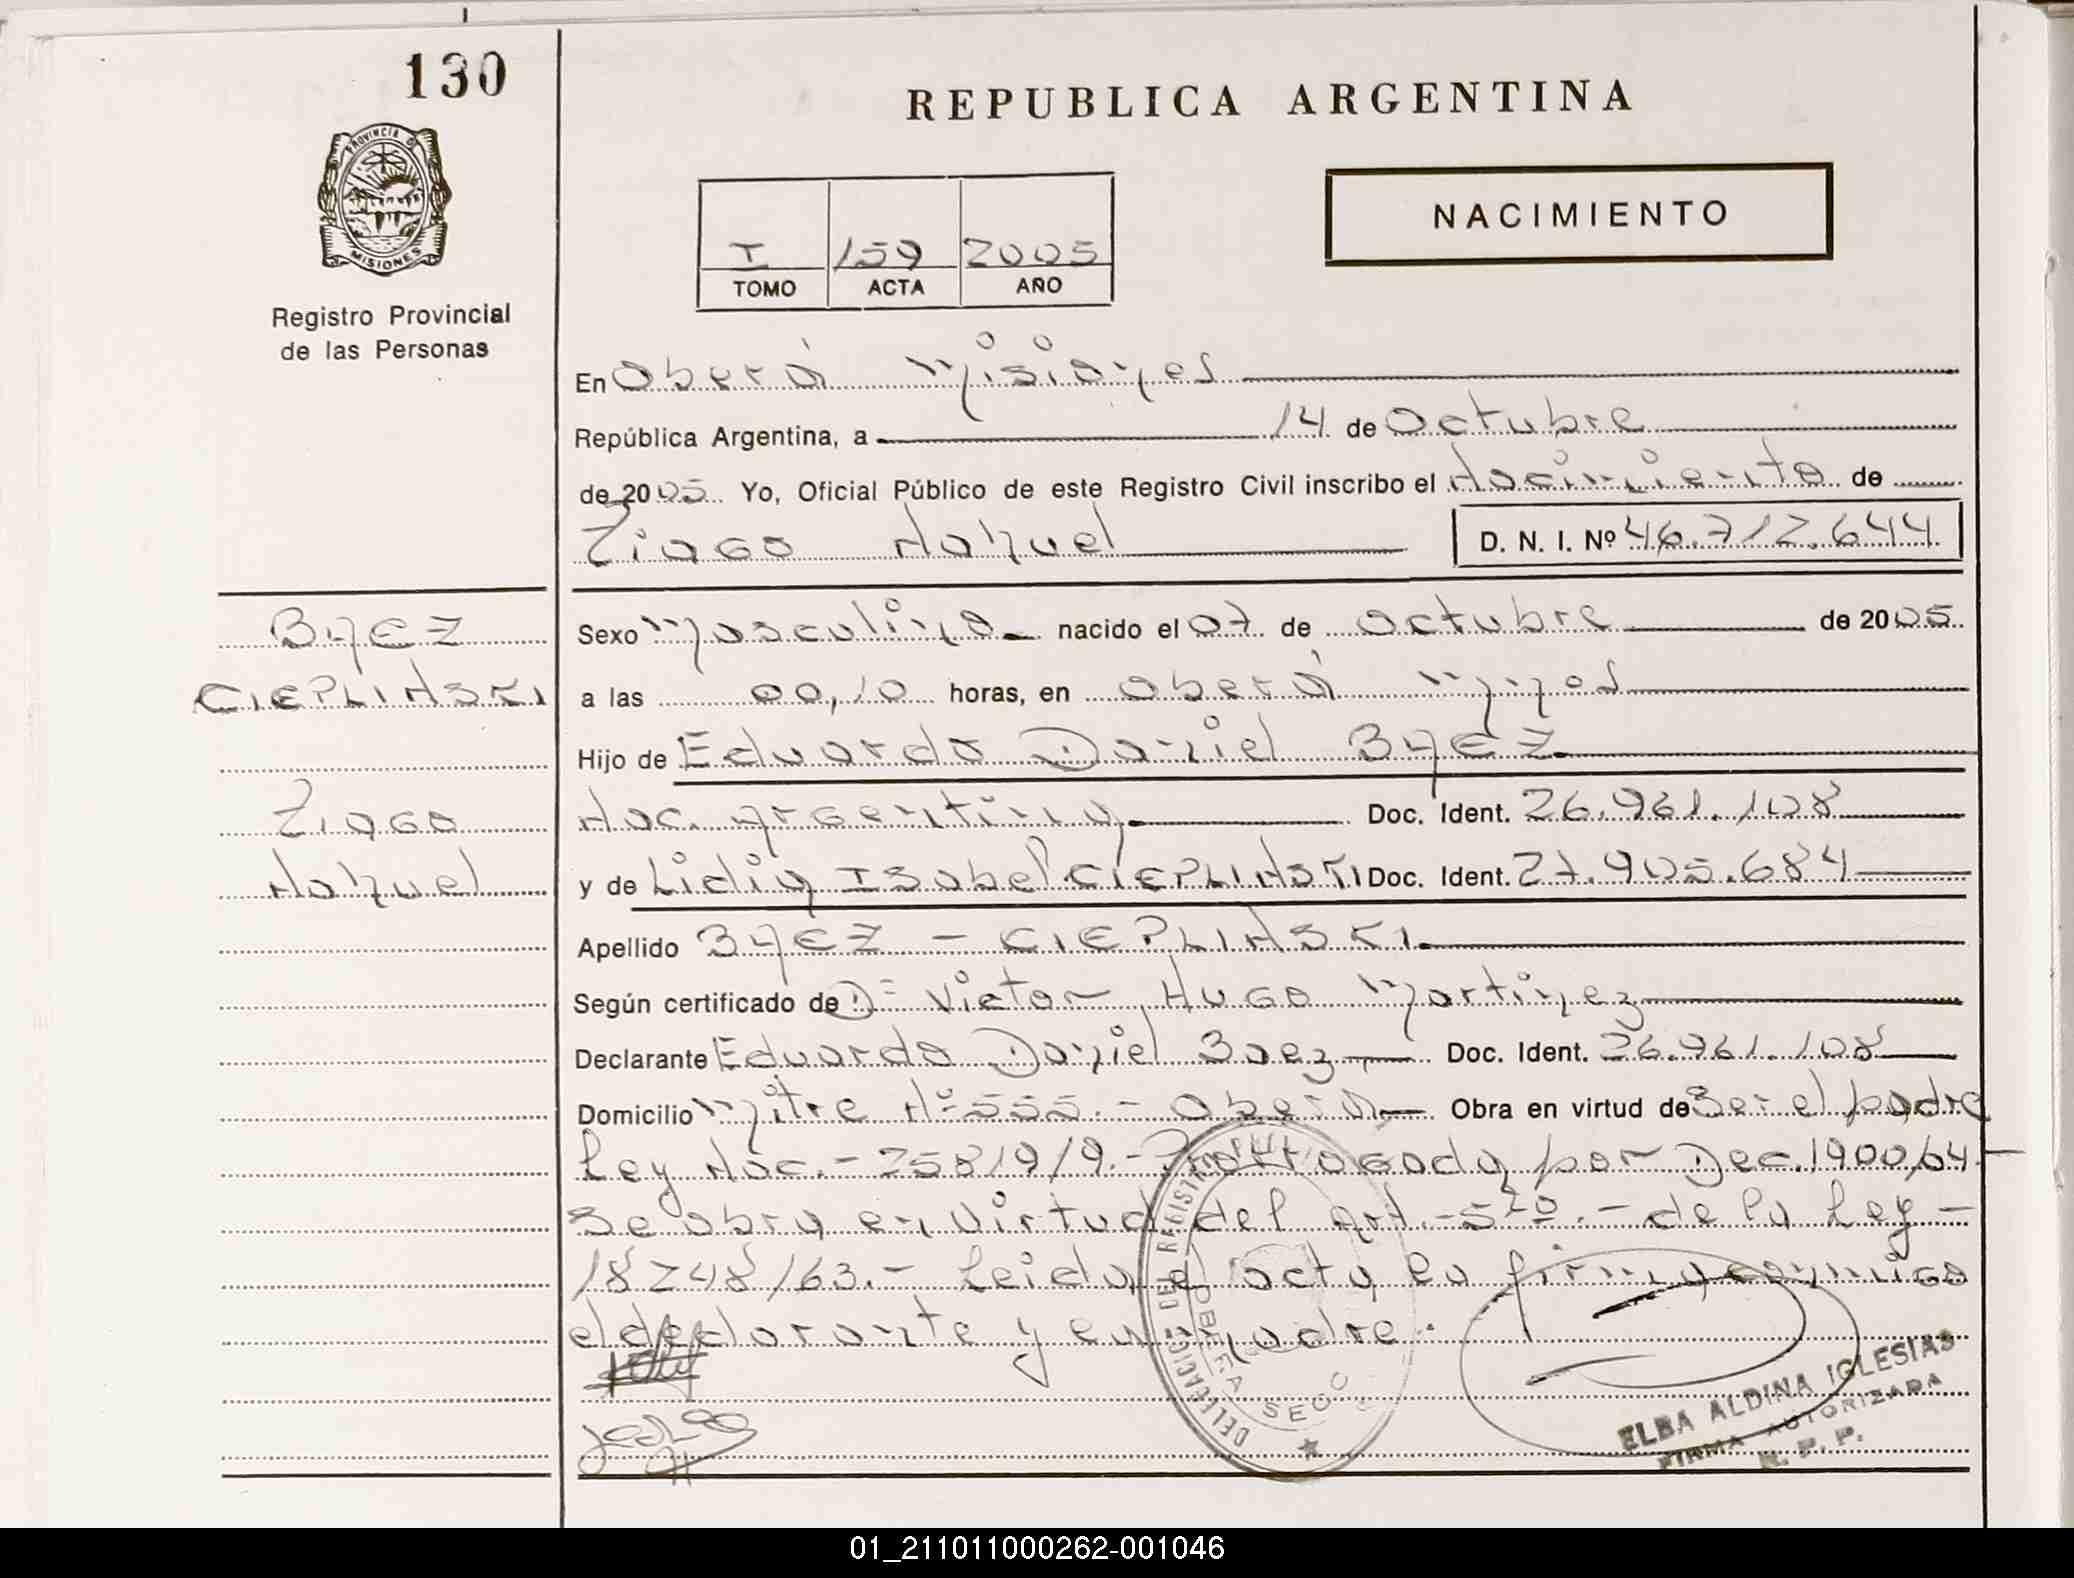 130
REPUBLICA ARGENTINA
PROVINCIA DE
MISIONES
Registro Provincial
de las Personas
NACIMIENTO
I 159 2005
TOMO ACTA AÑO
En Oberá Misiones
República Argentina, a 14 de Octubre
de 2005 Yo, Oficial Público de este Registro Civil inscribo el Nacimiento de
Tiago Nahuel D. N. I. Nº 46.712.644
BAEZ
CIEPLINSKI
Tiago
Nahuel
Sexo Masculino nacido el 07 de Octubre de 2005
a las 00,10 horas, en Oberá Mnes
Hijo de Eduardo Daniel BAEZ
Nac. Argentina Doc. Ident. 26.961.108
y de Lidia Isabel CIEPLINSKI Doc. Ident. 27.905.684
Apellido BAEZ - CIEPLINSKI
Según certificado de Dº Victor Hugo Martinez
Declarante Eduardo Daniel Baez Doc. Ident. 26.961.108
Domicilio Mitre Nº 555.- Oberá Obra en virtud de Ser el padre
Ley Nac.- 25819/9.- Prorrogada por Dec.1900/04-
Se obra en virtud del Art.-5to.- de la Ley-
18248/63.- Leida el acta la firma conmigo
el declarante y la madre.
DELEGACION DE REGISTRO
OBERA SECC
ELBA ALDINA IGLESIAS
FIRMA AUTORIZADA
R. P. P.
01_211011000262-001046